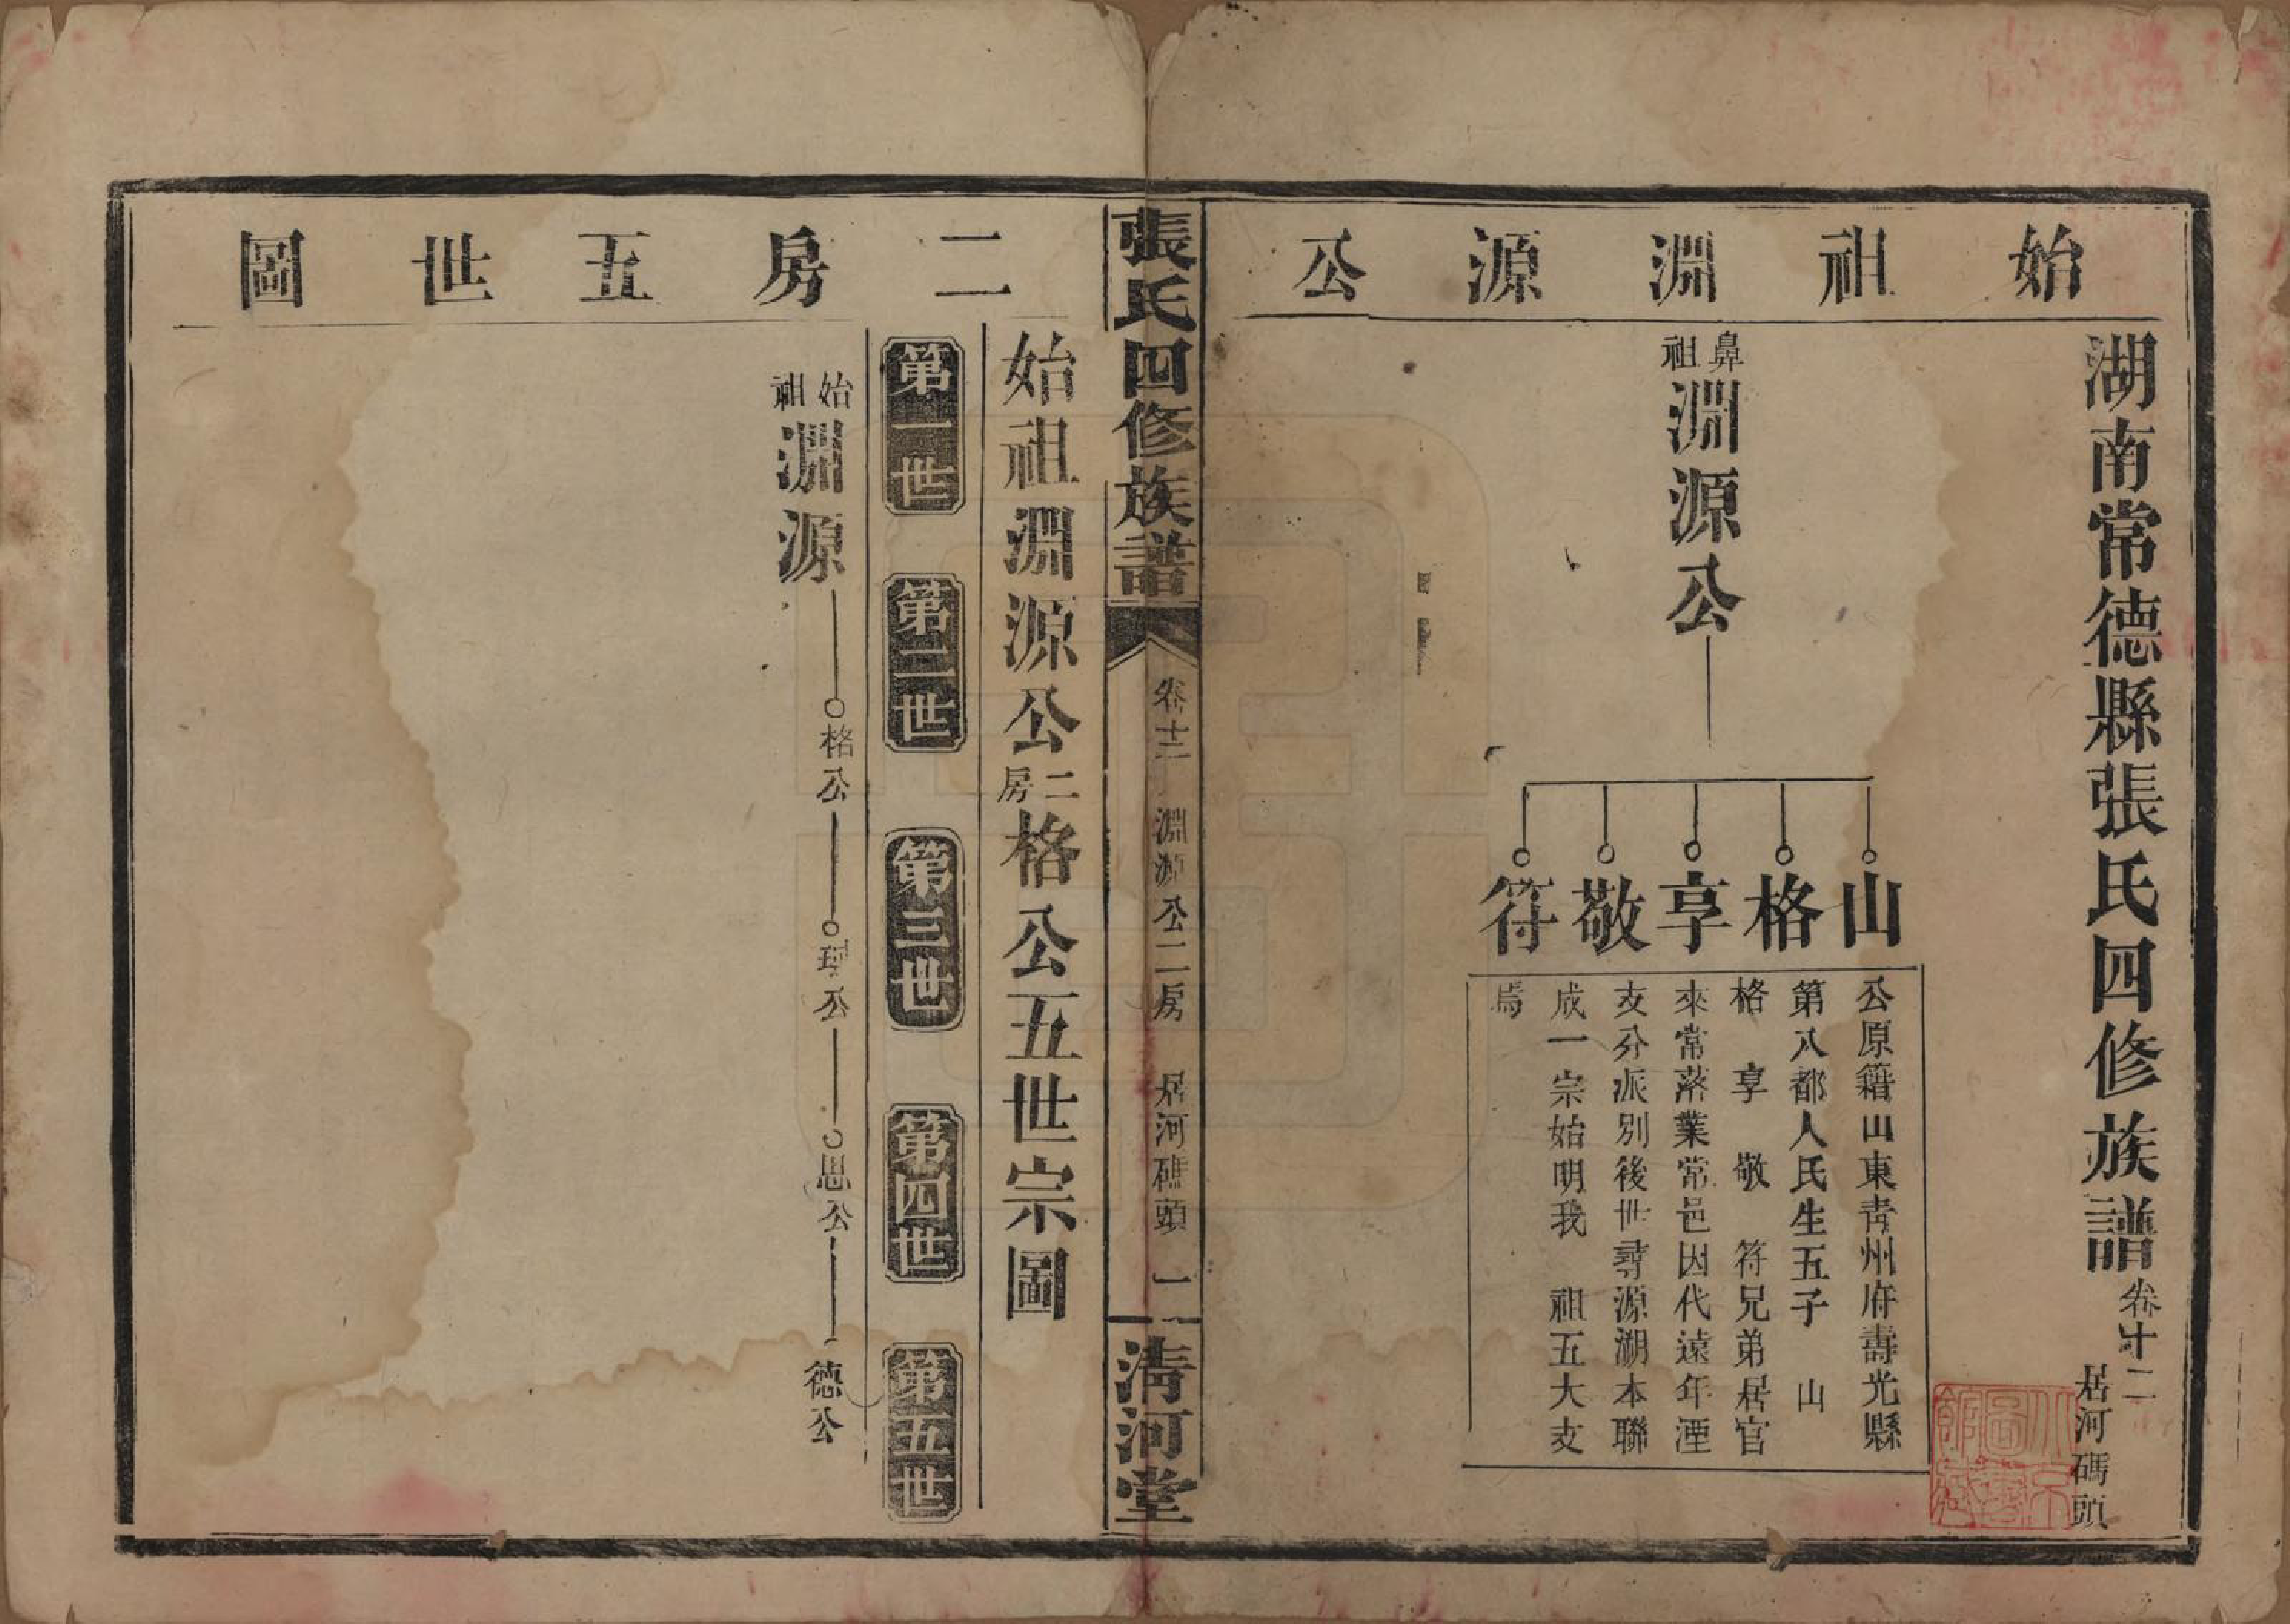 始祖淵源公
湖南常德縣張氏四修族譜卷十二 居河碼頭
鼻祖淵源公
山
格
享
敬
符
公原籍山東靑州府壽光縣
第八都人氏生五子 山
格 享 敬 符兄弟居官
來常落業常邑因代遠年湮
支分派別後世尋源溯本聯
成一宗始明我 祖五大支
焉
張氏四修族譜 卷十二 淵源公二房 居河碼頭 一 淸河堂
二房五世圖
始祖淵源公二房格公五世宗圖
第一世 第二世 第三世 第四世 第五世
始祖淵源 格公 公 思公 德公